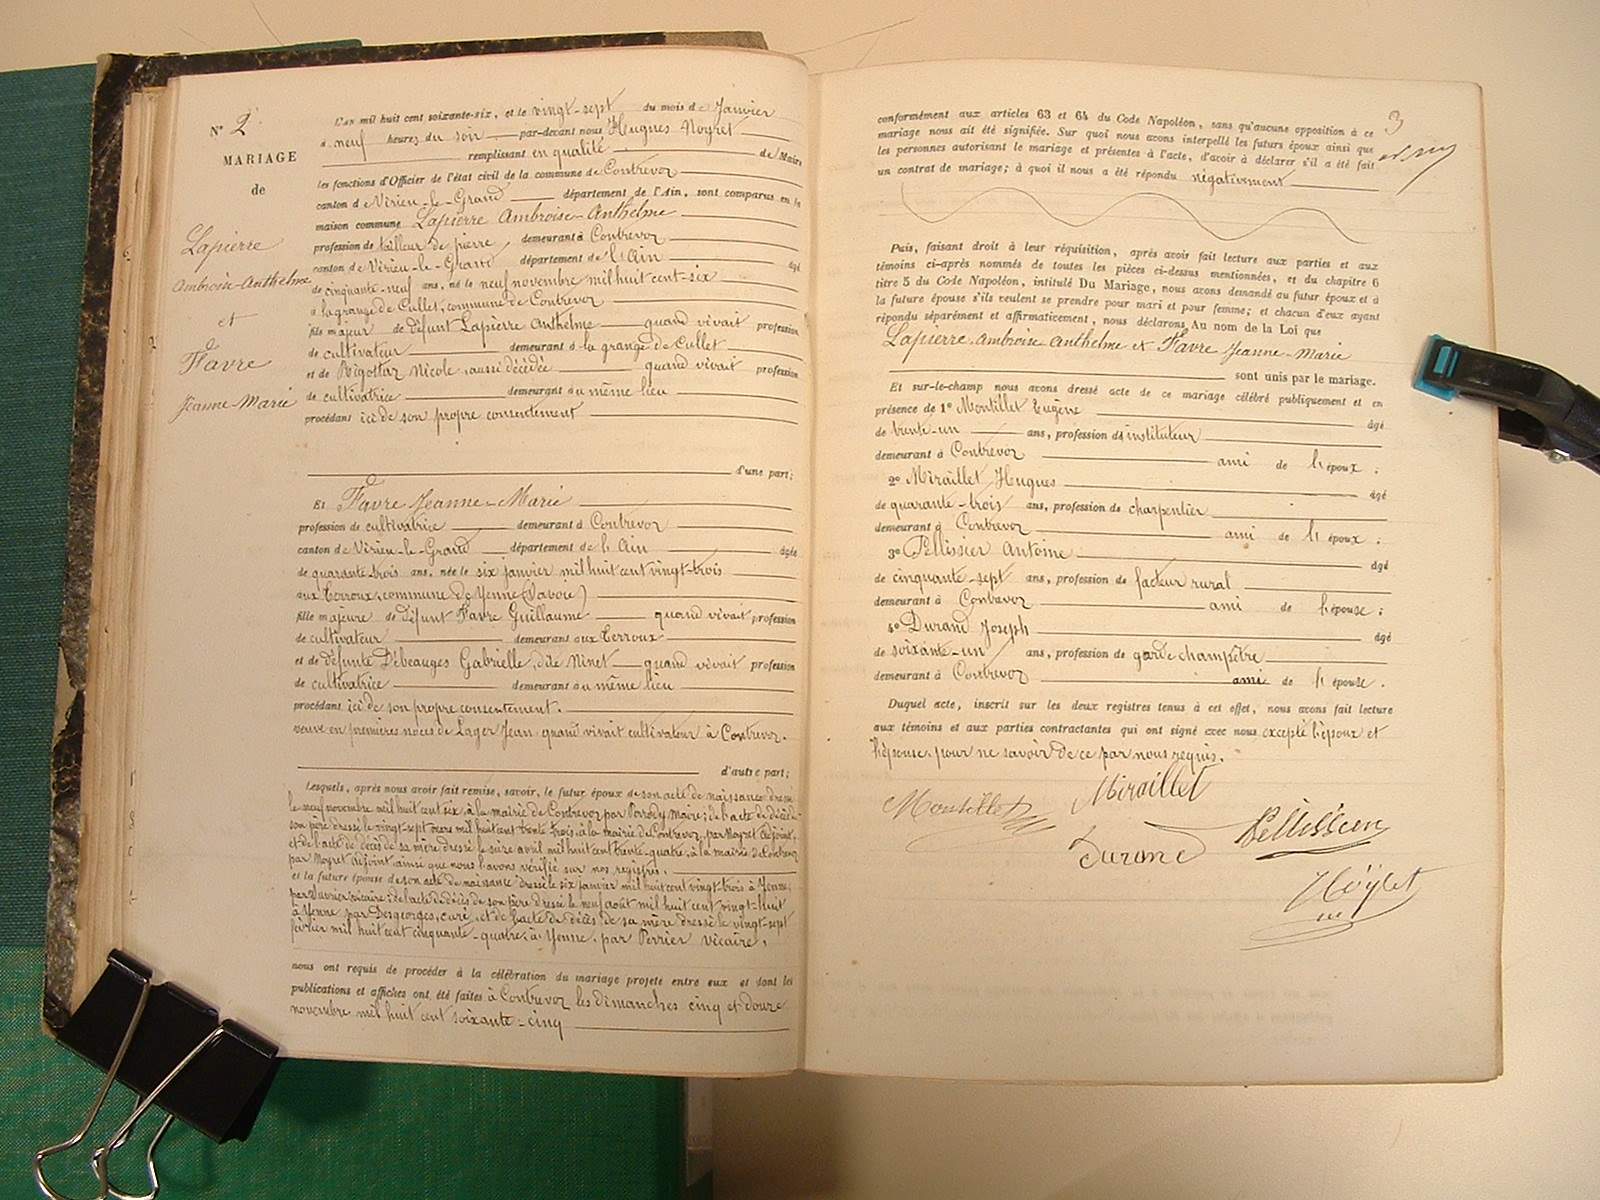 N° 2
MARIAGE
de
Lapierre
Ambroise-Anthelme
et
Favre
Jeanne-Marie
L'an mil huit cent soixante-six, et le vingt-sept du mois de Janvier
à neuf heures du soir par-devant nous Hugues Noyret
remplissant en qualité de Maire
les fonctions d'Officier de l'état civil de la commune de Contrevoz
canton de Virieu-le-Grand département de l'Ain, sont comparus en la
maison commune Lapierre Ambroise-Anthelme
profession de tailleur de pierre, demeurant à Contrevoz
canton de Virieu-le-Grand département de l'Ain âgé
de cinquante-neuf ans, né le neuf novembre mil huit cent-six
à la grange de Cullet, commune de Contrevoz
fils majeur de défunt Lapierre Anthelme quand vivait profession
de cultivateur demeurant à la grange de Cullet
et de Rigottaz Nicole, aussi décédée quand vivait profession
de cultivatrice demeurant au même lieu
procédant ici de son propre consentement
d'une part;
Et Favre Jeanne-Marie
profession de cultivatrice demeurant à Contrevoz
canton de Virieu-le-Grand département de l'Ain âgée
de quarante-trois ans, née le six janvier mil huit cent vingt-trois
aux Terroux, commune de Yenne (Savoie)
fille majeure de défunt Favre Guillaume quand vivait profession
de cultivateur demeurant aux Terroux
et de défunte Débeauges Gabrielle, dite Ninet quand vivait profession
de cultivatrice demeurant au même lieu
procédant ici de son propre consentement.
veuve en premières noces de Lager Jean quand vivait cultivateur à Contrevoz.
d'autre part;
Lesquels, après nous avoir fait remise, savoir, le futur époux de son acte de naissance dressé
le neuf novembre mil huit cent six, à la mairie de Contrevoz par Parrody Maire; de l'acte de décès de
son père dressé le vingt-sept mars mil huit cent trente trois, à la mairie de Contrevoz, par Noyret adjoint,
et de l'acte de décès de sa mère dressé le seize avril mil huit cent trente-quatre, à la mairie de Contrevoz
par Noyret adjoint, ainsi que nous l'avons vérifié sur nos registres.
et la future épouse de son acte de naissance dressé le six janvier mil huit cent vingt-trois à Yenne,
par vicaire; de l'acte de décès de son père dressé le neuf août mil huit cent vingt-huit
à Yenne par Desgeorges, curé, et de l'acte de décès de sa mère dressé le vingt-sept
février mil huit cent cinquante-quatre, à Yenne, par Perrier vicaire,
nous ont requis de procéder à la célébration du mariage projeté entre eux et dont les
publications et affiches ont été faites à Contrevoz les dimanches cinq et douze
novembre mil huit cent soixante-cinq
3
conformément aux articles 63 et 64 du Code Napoléon, sans qu'aucune opposition à ce
mariage nous ait été signifiée. Sur quoi nous avons interpellé les futurs époux ainsi que
les personnes autorisant le mariage et présentes à l'acte, d'avoir à déclarer s'il a été fait
un contrat de mariage; à quoi il nous a été répondu négativement
Puis, faisant droit à leur réquisition, après avoir fait lecture aux parties et aux
témoins ci-après nommés de toutes les pièces ci-dessus mentionnées, et du chapitre 6
titre 5 du Code Napoléon, intitulé Du Mariage, nous avons demandé au futur époux et à
la future épouse s'ils veulent se prendre pour mari et pour femme; et chacun d'eux ayant
répondu séparément et affirmativement, nous déclarons Au nom de la Loi que
Lapierre Ambroise Anthelme et Favre Jeanne-Marie
sont unis par le mariage.
Et sur-le-champ nous avons dressé acte de ce mariage célébré publiquement et en
présence de 1° Montillet Eugène âgé
de trente-un ans, profession d'instituteur
demeurant à Contrevoz ami de l'époux;
2° Miraillet Hugues âgé
de quarante-trois ans, profession de charpentier
demeurant à Contrevoz ami de l'époux;
3° Pellissier Antoine âgé
de cinquante-sept ans, profession de facteur rural
demeurant à Contrevoz ami de l'épouse;
4° Durand Joseph âgé
de soixante-un ans, profession de garde champêtre
demeurant à Contrevoz ami de l'épouse.
Duquel acte, inscrit sur les deux registres tenus à cet effet, nous avons fait lecture
aux témoins et aux parties contractantes qui ont signé avec nous excepté l'époux et
l'épouse, pour ne savoir de ce par nous requis.
Montillet
Miraillet
Durand
Pellissier
Noyret